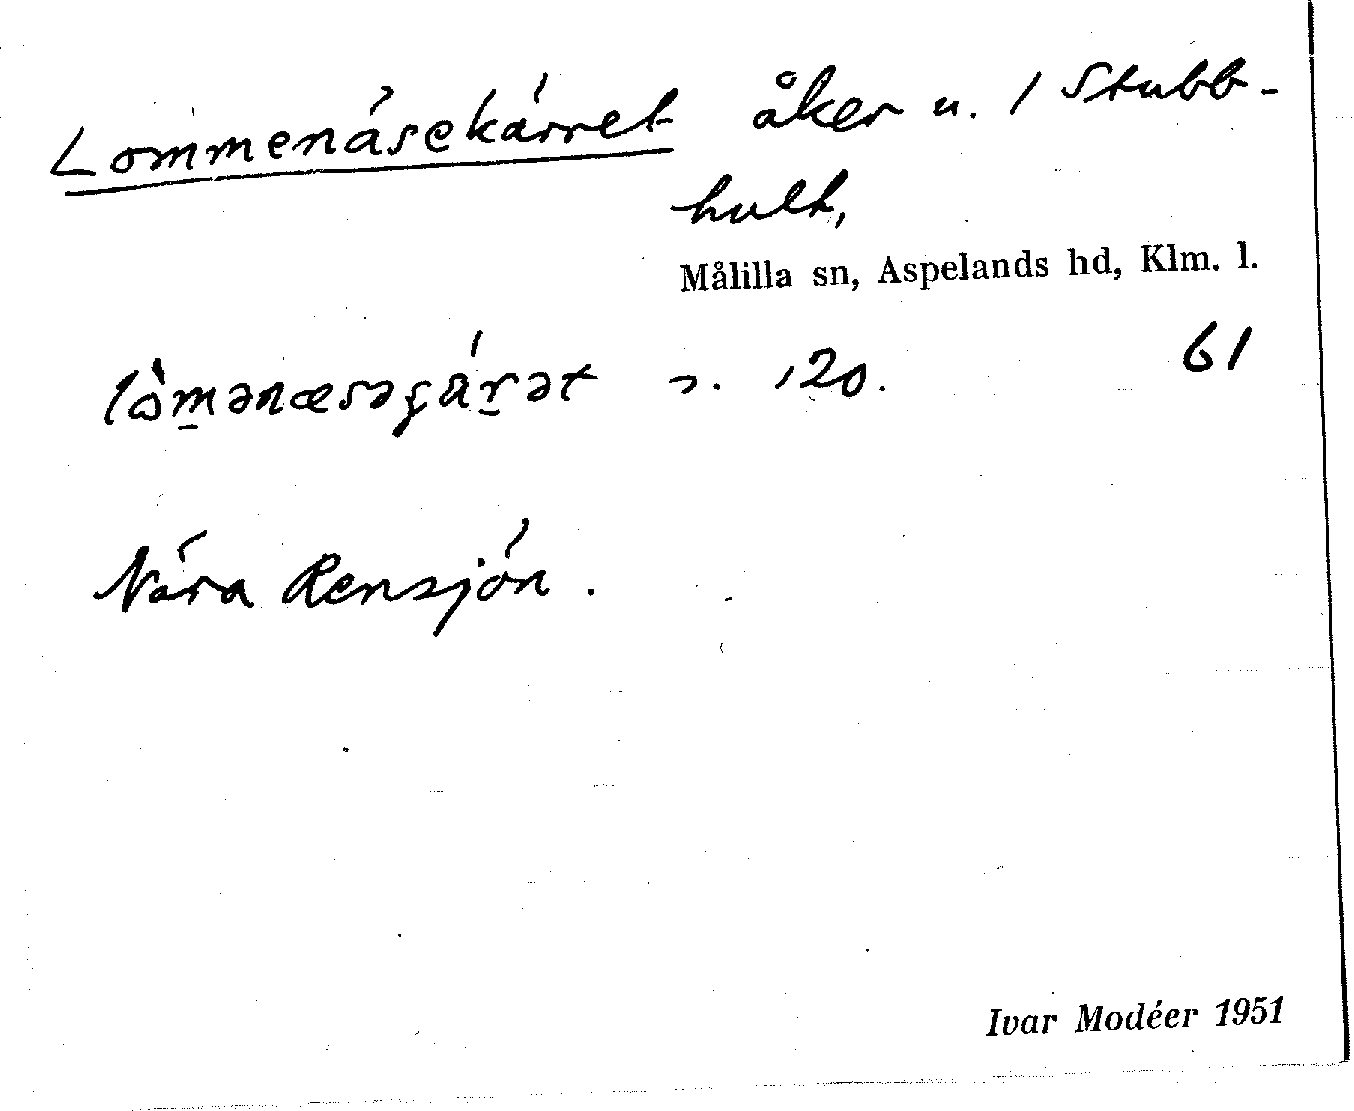 Lommenäsekärret åker u. 1 Stubb-
hult,
Målilla sn, Aspelands hd, Klm. l.
61
120.
Nära Rensjön.
Ivar Modéer 1951